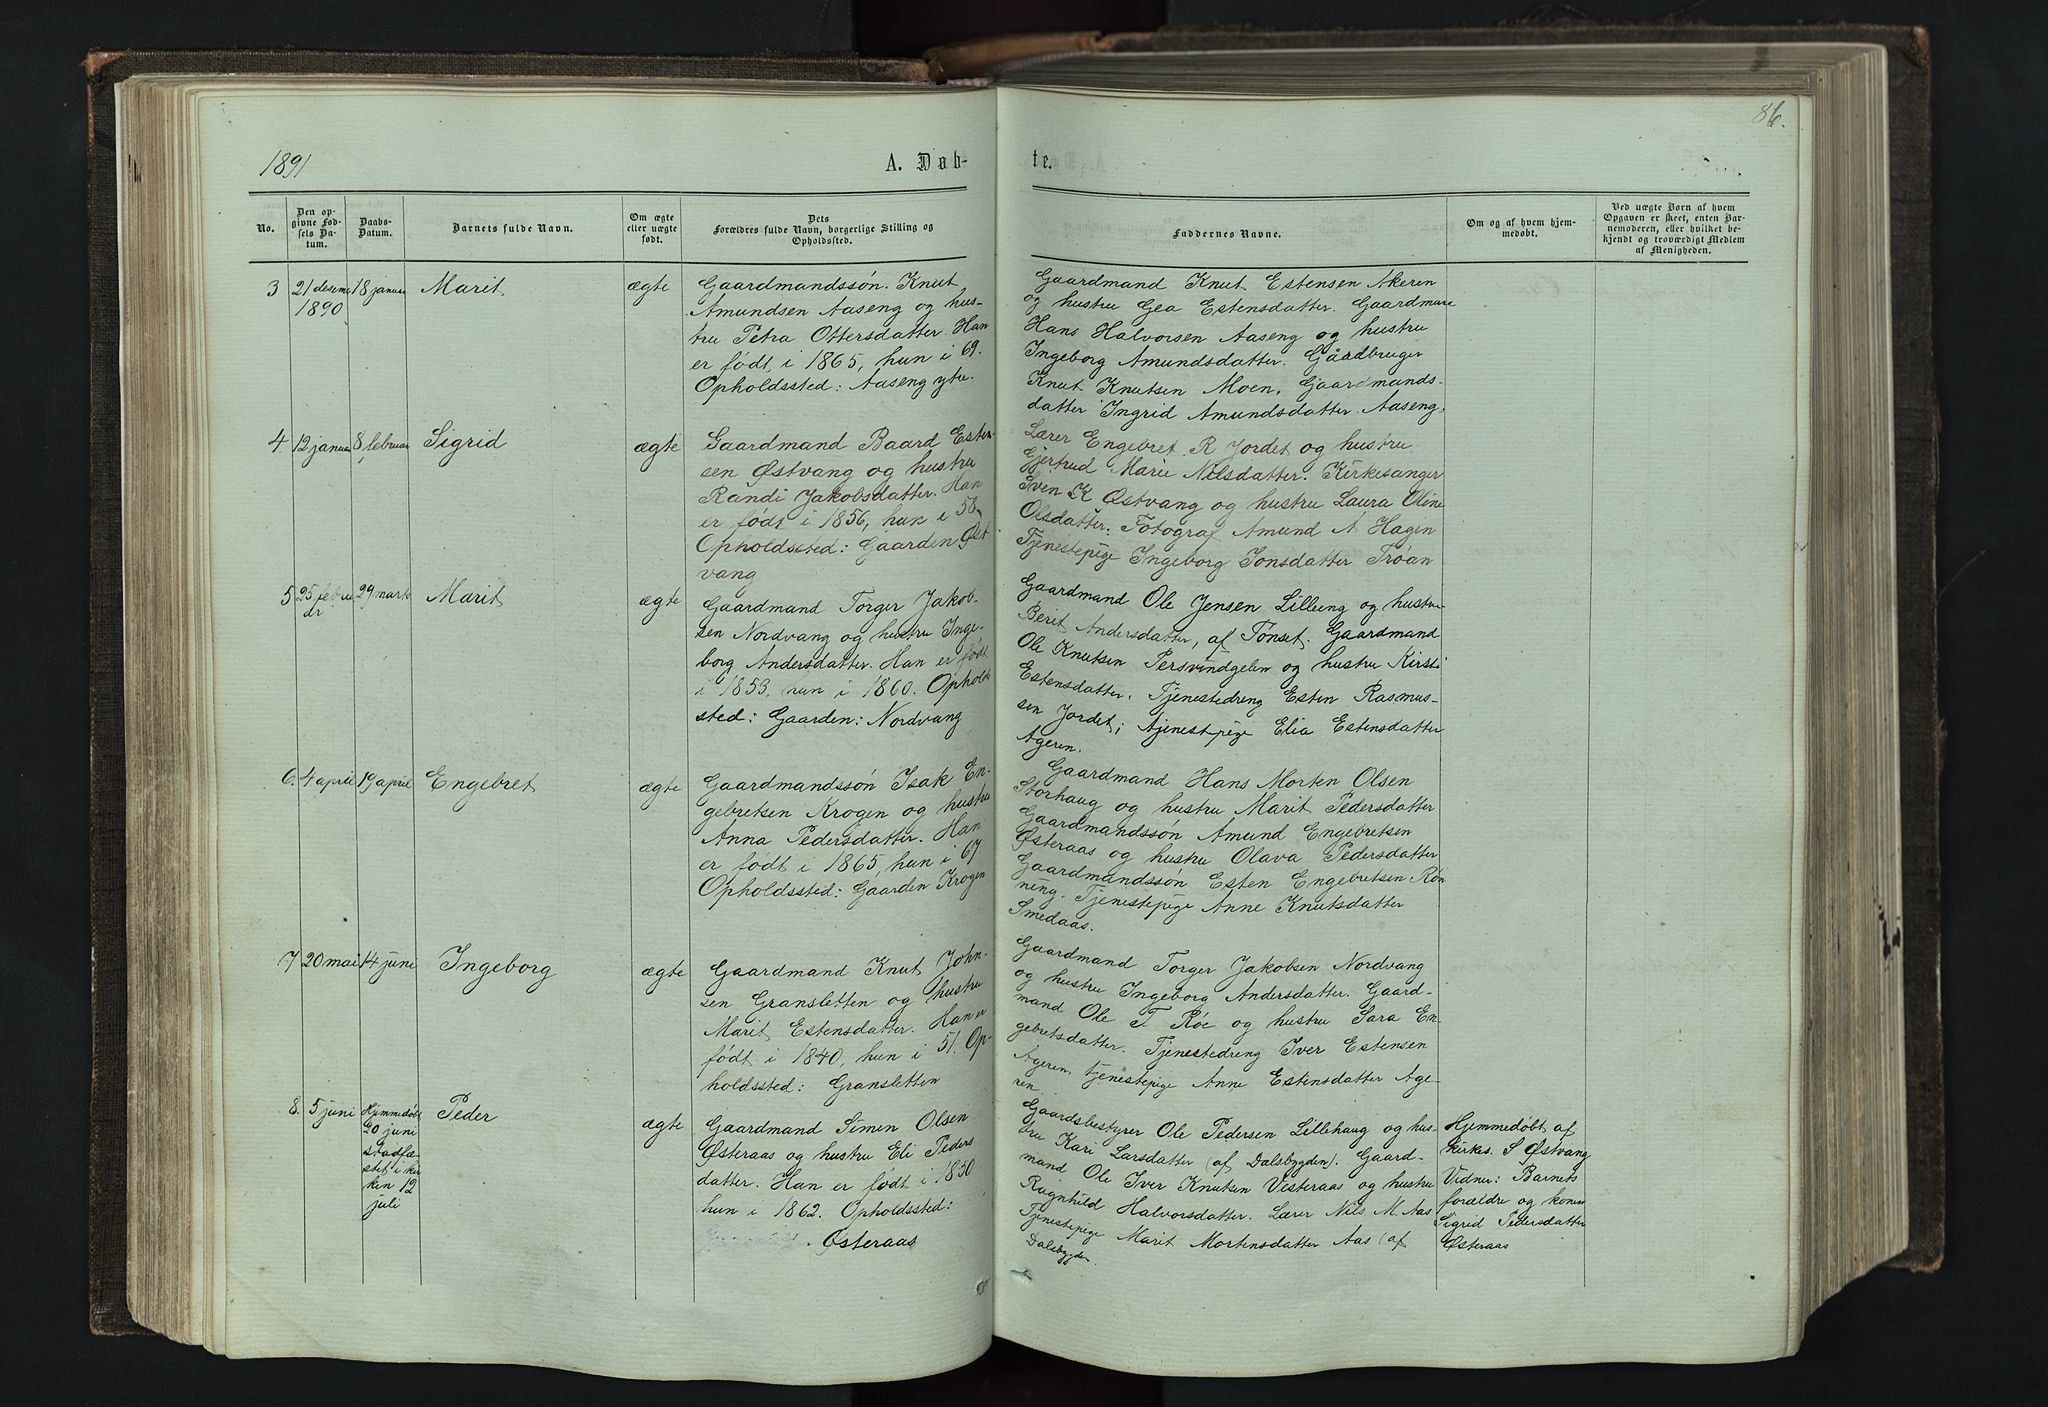 86.
1891
A. Døb-
te.
No.
Den op-
givne Fød-
sels Da-
tum.
Daabs-
Datum.
Barnets fulde Navn.
Om ægte
eller uægte
født.
Dets
Forældres fulde Navn, borgerlige Stilling og
Opholdssted.
Faddernes Navne.
Om og af hvem hjem-
medøbt.
Ved uægte Børn af hvem
Opgaven er skeet, enten Bar-
nemoderen, eller hvilket be-
kjendt og troværdigt Medlem
af Menigheden.
3
21 desem
1890
18 januar
Marit
ægte
Gaardmandssøn. Knut
Amundsen Aaseng og hus-
tru Petra Ottersdatter. Han
er født i 1865, hun i 69.
Opholdssted: Aaseng ytre.
Gaardmand Knut Estensen Akeren
og hustru Gea Estensdatter. Gaardmand
Hans Halvorsen Aaseng og hustru
Ingeborg Amundsdatter. Gåardbruger
Knut Knutsen Moen, Gaardmands-
datter Ingrid Amundsdatter Aaseng.
4
12 januar
8 februar
Sigrid
ægte
Gaardmand Baard Esten-
sen Østvang og hustru
Randi Jakobsdatter. Han
er født i 1856, hun i 58
Opholdssted: Gaarden Øst
vang
Lærer Engebret R Jordet og hustru
Gjertrud Marie Nilsdatter. Kirkesanger
Sven K Østvang og hustru Laura Oline
Olsdatter. Fotograf Amund A Hagen
Tjenestepige Ingeborg Jonsdatter Trøan
5
25 febru
ar
29 marts
Marit
ægte
Gaardmand Torger Jakob-
sen Nordvang og hustru Inge-
borg Andersdatter. Han er født
i 1853, hun i 1860. Opholds
sted: Gaarden: Nordvang
Gaardmand Ole Jensen Lilleeng og hustru
Berit Andersdatter, af Tønset. Gaardmand
Ole Knutsen Persvindgelen og hustru Kirsti
Estensdatter. Tjenestedreng Esten Rasmus-
sen Jordet; tjenestpige Elia Estensdatter
Ageren.
6.
4 april
19 april
Engebret
ægte
Gaardmandssøn Isak En-
gebretsen Krogen og hustru
Anna Pedersdatter. Han
er født i 1865, hun i 67.
Opholdssted: Gaarden Krogen
Gaardmand Hans Morten Olsen
Storhaug og hustru Marit Pedersdatter
Gaardmandssøn Amund Engebretsen
Østeraas og hustru Olava Pedersdatter
Gaardmandssøn Esten Engebretsen Røn
ning. Tjenestepige Anne Knutsdatter
Smedaas.
7
20 mai
14 juni
Ingeborg
ægte
Gaardmand Knut John-
sen Gransletten og hustru
Marit Estensdatter. Han er
født i 1840, hun i 51. Op-
holdssted: Gransletten
Gaardmand Torger Jakobsen Nordvang
og hustru Ingeborg Andersdatter. Gaard-
mand Ole T. Røe og hustru Sara En
gebretsdatter. Tjenestedreng Iver Estensen
Ageren, tjenestepige Anne Estensdatter Age-
ren
8.
5 juni
Hjemmedøbt
20 juni
stadfæ-
stet i kir
ken 12
juli
Peder
ægte
Gaardmand Simen Olsen
Østeraas og hustru Eli Peders
datter. Han er født i 1850
hun i 1862. Opholdssted:
Østeraas
Gaardsbestyrer Ole Pedersen Lillehaug og hus-
tru Kari Larsdatter (af Dalsbygden). Gaard-
mand Ole Iver Knutsen Vesteraas og hustru
Ragnhild Halvorsdatter. Lærer Nils M. Aas
Tjenestepige Marit Mortensdatter Aas (af
Dalsbygden.
Hjemmedøbt af
kirkes. S Østvang
Vidner: Barnets
forældre og konen
Sigrid Pedersdatter
Østeraas